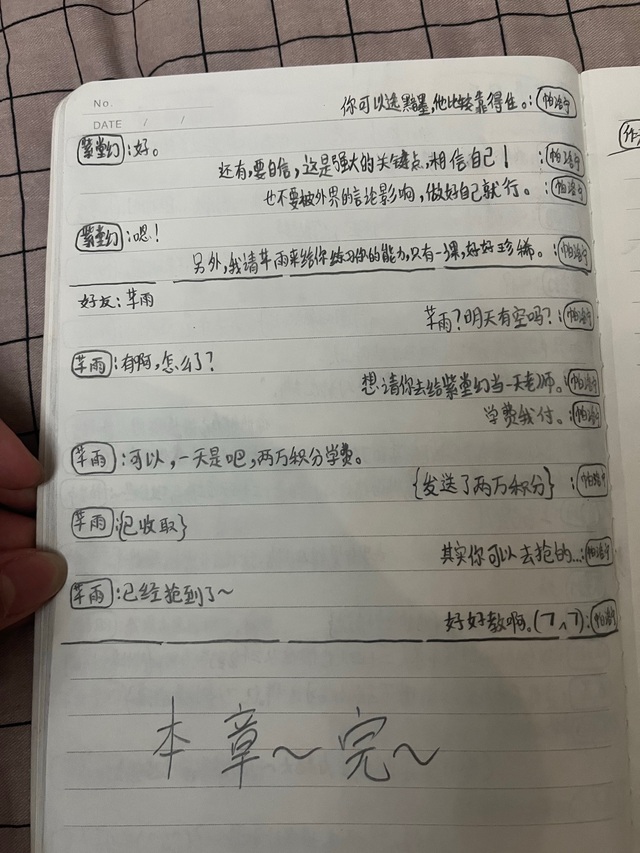 No.
DATE / /
你可以选黑墨,他比较靠得住。:帕洛宁
紫堂幻:好。
还有,要自信,这是强大的关键点,相信自己!:帕洛宁
也不要被外界的言论影响,做好自己就行。:帕洛宁
紫堂幻:嗯!
另外,我请芊雨来给你练习你的能力,只有一课,好好珍稀。:帕洛宁
好友:芊雨
芊雨?明天有空吗?:帕洛宁
芊雨:有啊,怎么了?
想请你去给紫堂幻当一天老师。:帕洛宁
学费我付。:帕洛宁
芊雨:可以,一天是吧,两万积分学费。
{发送了两万积分}:帕洛宁
芊雨:{已收取}
其实你可以去抢的...:帕洛宁
芊雨:已经抢到了~
好好教啊。(7^7):帕洛宁
本章~完~